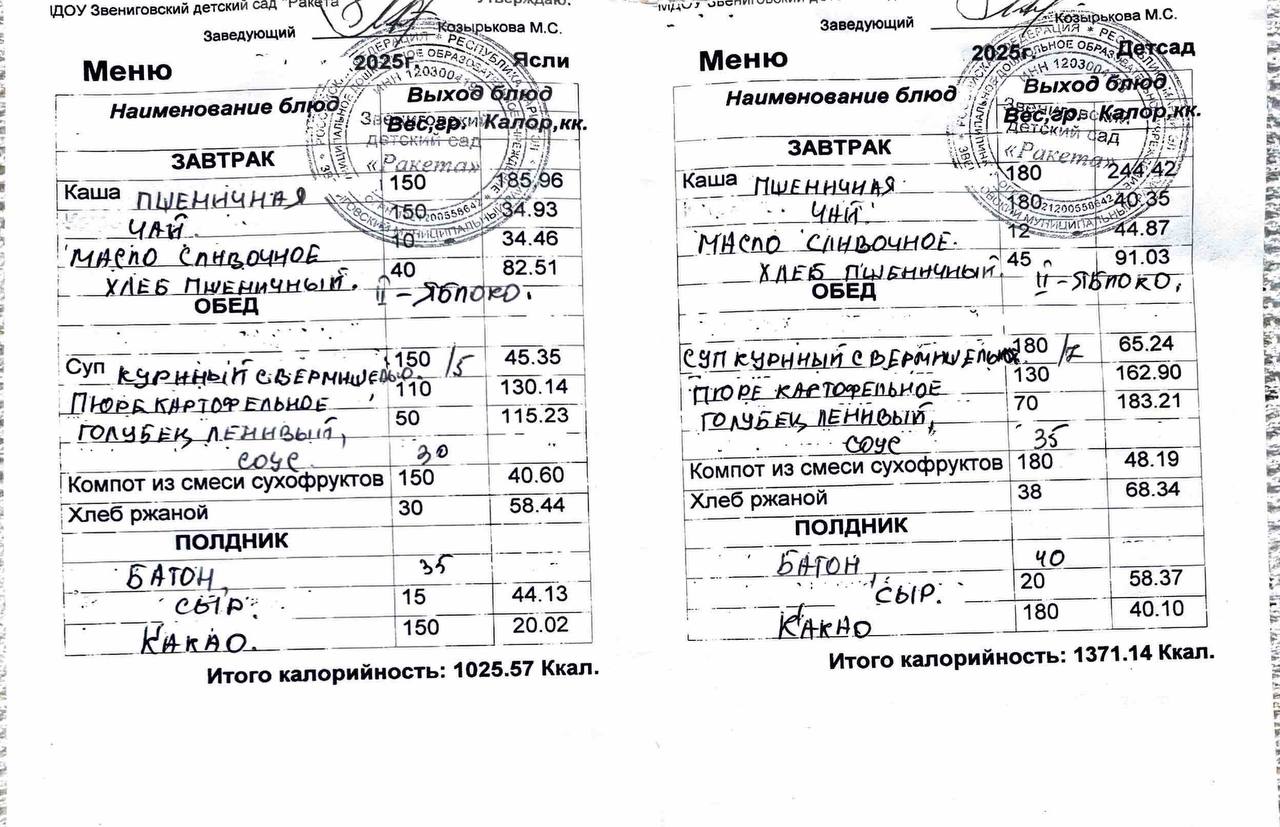 МДОУ Звениговский детский сад "Ракета
Утверждаю:
Заведующий Козырькова М.С.
Меню 2025г. Ясли
Наименование блюд Выход блюд
Вес,гр. Калор,кк.
ЗАВТРАК
Каша ПШЕНИЧНАЯ 150 185.96
ЧАЙ. 150 34.93
МАСЛО СЛИВОЧНОЕ 10 34.46
ХЛЕБ ПШЕНИЧНЫЙ. 40 82.51
ОБЕД II - ЯБЛОКО.
Суп КУРИНЫЙ С ВЕРМИШЕЛЬЮ 150/5 45.35
ПЮРЕ КАРТОФЕЛЬНОЕ, 110 130.14
ГОЛУБЕЦ ЛЕНИВЫЙ, 50 115.23
СОУС 30
Компот из смеси сухофруктов 150 40.60
Хлеб ржаной 30 58.44
ПОЛДНИК
БАТОН, 35
СЫР. 15 44.13
КАКАО. 150 20.02
Итого калорийность: 1025.57 Ккал.
МДОУ Звениговский
Заведующий Козырькова М.С.
Меню 2025г. Детсад
Наименование блюд Выход блюд
Вес,гр. Калор,кк.
ЗАВТРАК
Каша ПШЕНИЧНАЯ 180 244.42
ЧАЙ 180 40.35
МАСЛО СЛИВОЧНОЕ. 12 44.87
ХЛЕБ ПШЕНИЧНЫЙ 45 91.03
ОБЕД II - ЯБЛОКО.
СУП КУРИНЫЙ С ВЕРМИШЕЛЬЮ 180/7 65.24
ПЮРЕ КАРТОФЕЛЬНОЕ 130 162.90
ГОЛУБЕЦ ЛЕНИВЫЙ, 70 183.21
СОУС 35
Компот из смеси сухофруктов 180 48.19
Хлеб ржаной 38 68.34
ПОЛДНИК
БАТОН, 40
СЫР. 20 58.37
КАКАО 180 40.10
Итого калорийность: 1371.14 Ккал.
Звениговский
детский сад
«Ракета»
Звениговский
детский сад
«Ракета»